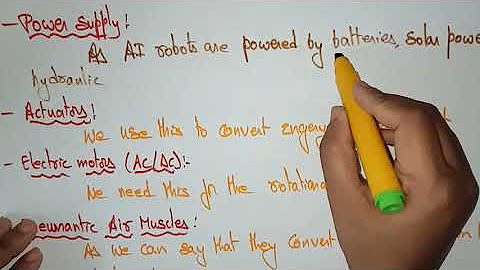 - Power Supply!
As AI robots are powered by batteries, solar powe
hydraulic
- Actuators!
We use this to convert engergy
- Electric motors (AC/DC):-
We need this fr the rotationa
neumantic Air Muscles!
As we can say that they convert